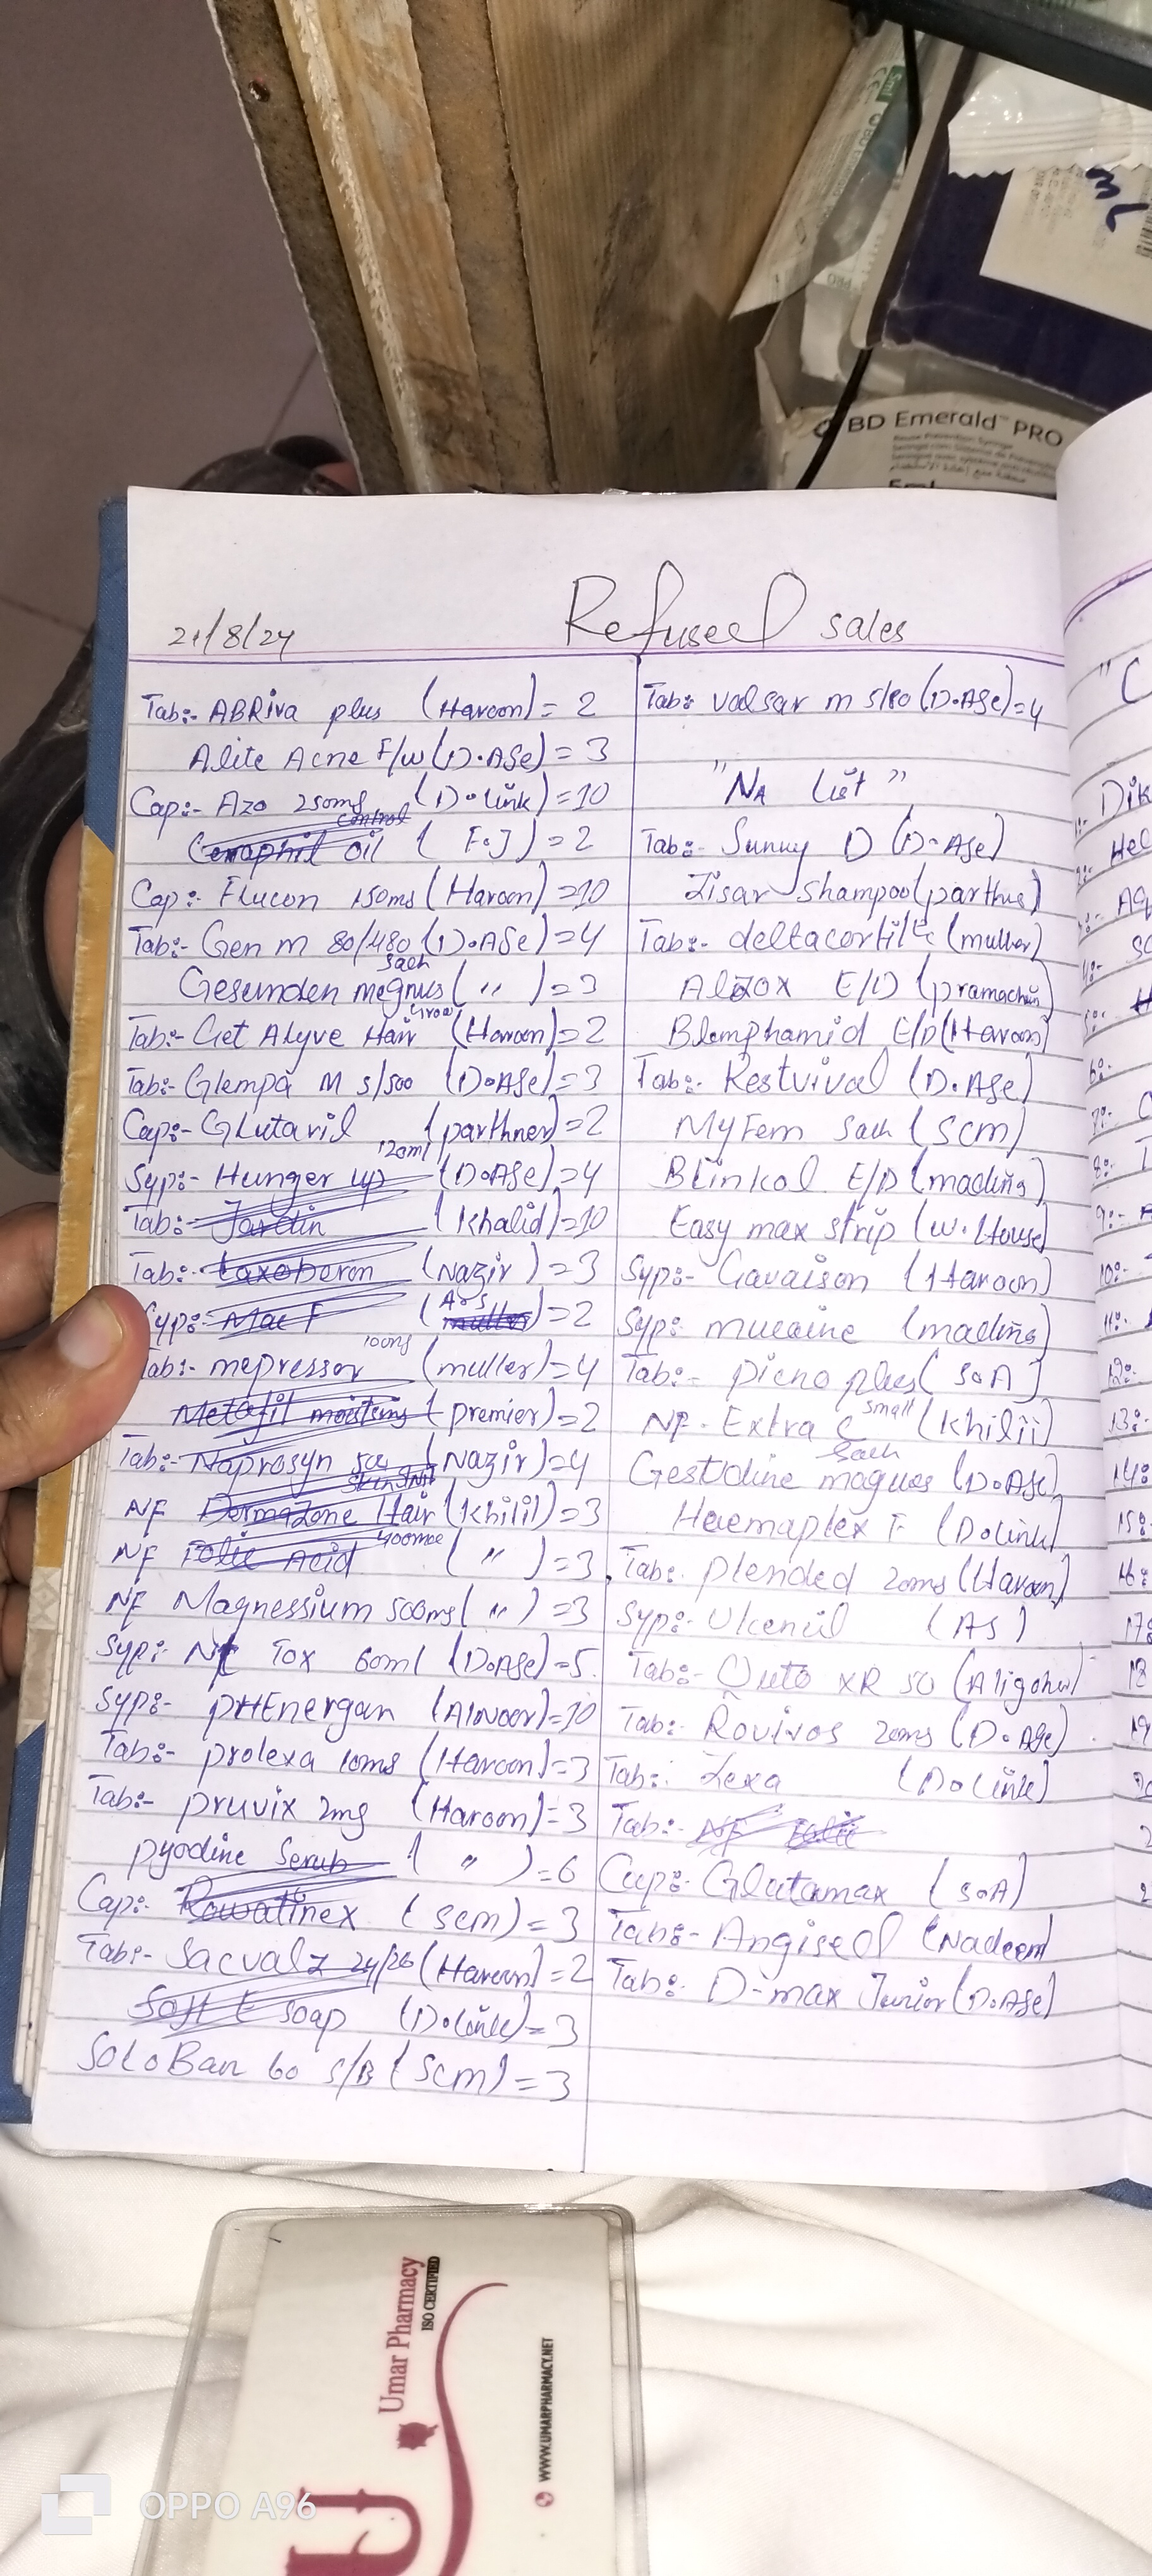 BD Emerald™ PRO
Reuse Prevention Syringe
5ml
21/8/24 Refused sales
Tab:- ABRiva plus (Haroon) = 2
Alite Acne F/w (D.ASe) = 3
Cap:- Azo 250mg (D.link) = 10
control
Cenaphil oil ( F.J ) = 2
Cap:- Flucon 150ms (Haroon) = 10
Tab:- Gen m 80/480 (D.ASe) = 4
Sach
Gesunden megnus ( " ) = 3
Tab:- Get Alyve Hair (Haroon) = 2
Tab:- Glempa M 5/500 (D.ASe) = 3
Cap:- GLutavil (parthner) = 2
120ml
Syp:- Hunger up (D.ASe) = 4
Tab:- Jardin (Khalid) = 10
Tab:- Laxoberon (Nazir) = 3
Syp:- Mac F (Ars muller) = 2
100mg
Tab:- mepressor (muller) = 4
Metafil moistring (premier) = 2
Tab:- Naprosyn 500 (Nazir) = 4
NF Dermazone Hair (Khilil) = 3
400mce
NF Folic Acid ( " ) = 3
NF Magnessium 500mg ( " ) = 3
Syp:- Nt Tox 60ml (D.ASe) = 5
Syp:- pHEnergan (AlNoor) = 10
Tab:- prolexa 10ms (Haroon) = 3
Tab:- pruvix 2mg (Haroon) = 3
pyodine Serub ( " ) = 6
Cap:- Rowatinex (Scm) = 3
Tab:- Sacvalz 24/26 (Haroon) = 2
Soft E soap (D.link) = 3
SoLoBan 60 S/B (Scm) = 3
Tab:- valsar m 5/80 (D.ASe) = 4
"NA List"
Tab:- Sunny D (D-Ase)
Zisar Shampoo (parthus)
Tab:- deltacortil (muller)
Alzox E/D (pramachin)
Blemphamid E/D (Haroon)
Tab:- Restvival (D.ASe)
MyFem Sach (Scm)
Blinkol E/D (madina)
Easy max strip (w.House)
Syp:- Gavaison (Haroon)
Syp:- mucaine (madina)
Tab:- picno plus (S.A)
small
NF- Extra C (Khilil)
Sach
Gestodine magnus (D.ASe)
Haemaplex F (D.link)
Tab:- plended 20ms (Haroon)
Syp:- Ulcenil (AS)
Tab:- Quto XR 50 (Aligohar)
Tab:- Rovivos 20ms (D.ASe)
Tab:- Zexa (D.link)
Tab:- NF Folic
Cap:- Glutamax (S.A)
Tab:- Angised (Nadeem)
Tab:- D-max Junior (D.ASe)
Umar Pharmacy
ISO CERTIFIED
WWW.UMARPHARMACY.NET
OPPO A96